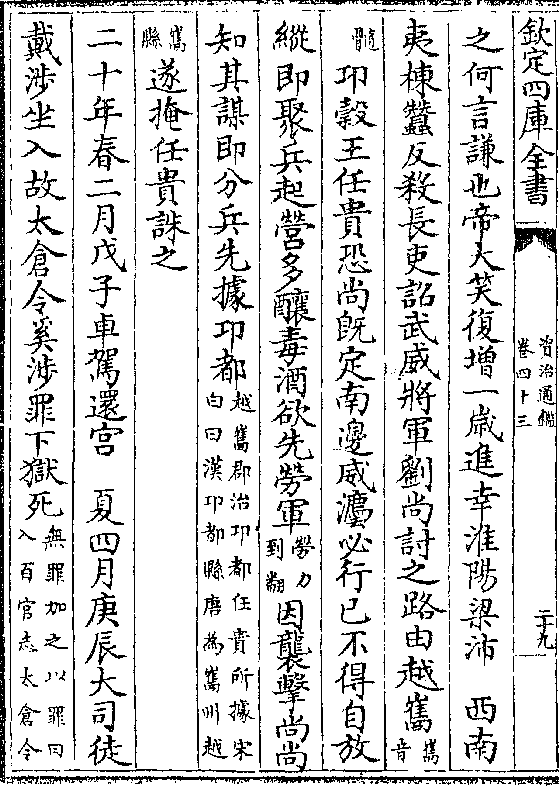 欽定四庫全書
資治通鑑
卷四十三
二十九
之何言謙也帝大笑復增一歲進幸淮陽梁沛　西南
夷棟蠶反殺長吏詔武威將軍劉尚討之路由越巂
巂音
髓
邛穀王任貴恐尚既定南邊威灋必行已不得自放
縱即聚兵起營多釀毒酒欲先勞軍
勞力
到翻
因襲擊尚尚
知其謀即分兵先據邛都
越巂郡治邛都任貴所據宋
白曰漢邛都縣唐為巂州越
巂
縣
遂掩任貴誅之
二十年春二月戊子車駕還宮　夏四月庚辰大司徒
戴涉坐入故太倉令奚涉罪下獄死
無罪加之以罪曰
入百官志太倉令